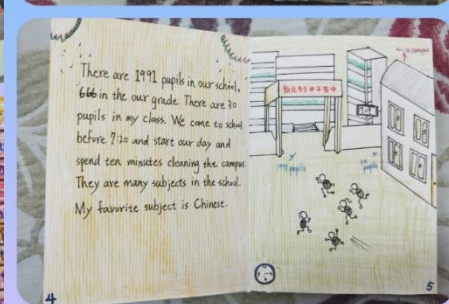 There are 1991 pupils in our school,
666 in the our grade. There are 30
pupils in my class. We come to school
before 7:20 and start our day and
spend ten minutes cleaning the campus.
They are many subjects in the school.
My favorite subject is Chinese.
1991 pupils
pupils
4
5